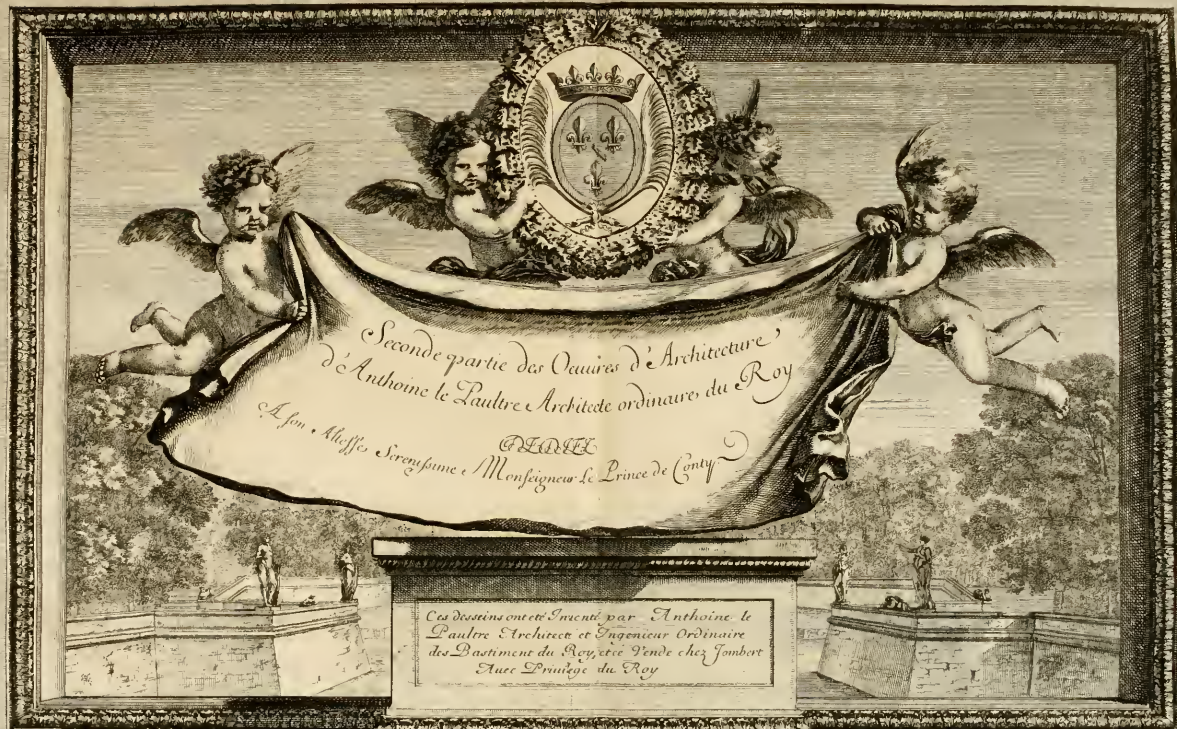 Seconde partie des Oeuures d'Architecture
d'Anthoine le Paultre Architecte ordinaire du Roy
DEDIEE
A son Altesse Serenissime Monseigneur Le Prince de Conty
Ces desseins ont eté Inventé par Anthoine le
Paultre Architecte et Ingenieur Ordinaire
des Bastiment du Roy, et ce Vende chez Jombert
Auec Priuilege du Roy